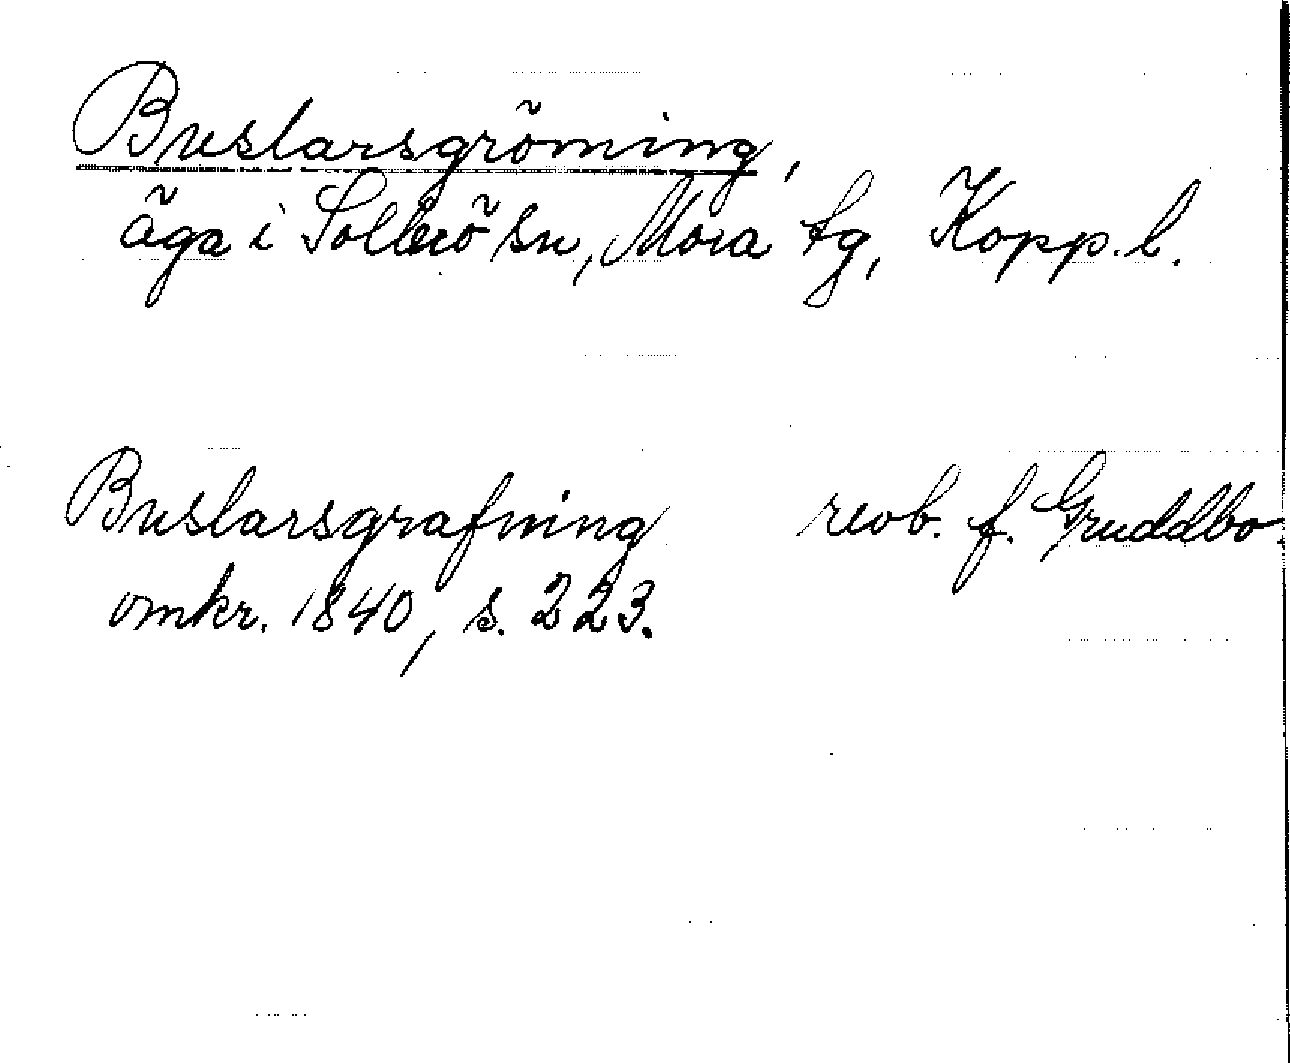 Buslarsgröming,
äga i Sollerö sn, Mora tg, Kopp. l.
Buslarsgrafning revb. f. Gruddbo
omkr. 1840, s. 223.